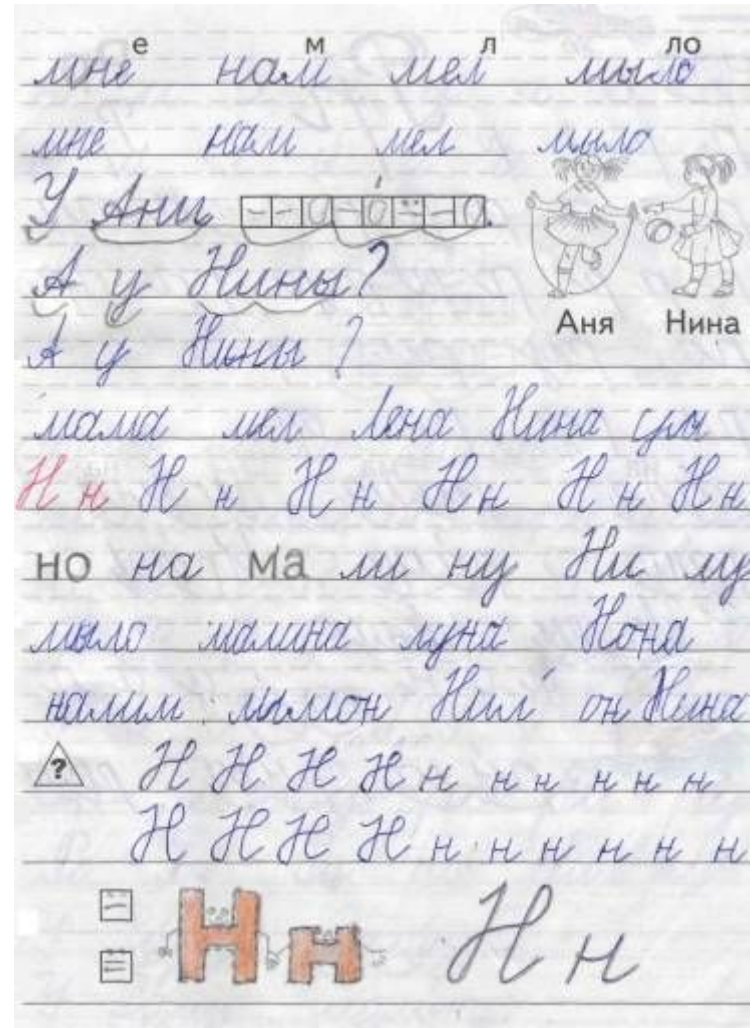 е м л ло
мне нам мел мыло
мне нам мел мыло
У Ани
А у Нины?
Аня Нина
А у Нины ?
мама мел Лена Нина
Н н Н н Н н Н н Н н Н н
но на ма ли ну Ни лу
мыло малина луна Нона
налим лимон Нил он Нина
? Н Н Н Н н н н н н н
Н Н Н Н н н н н н н
Н н Н н